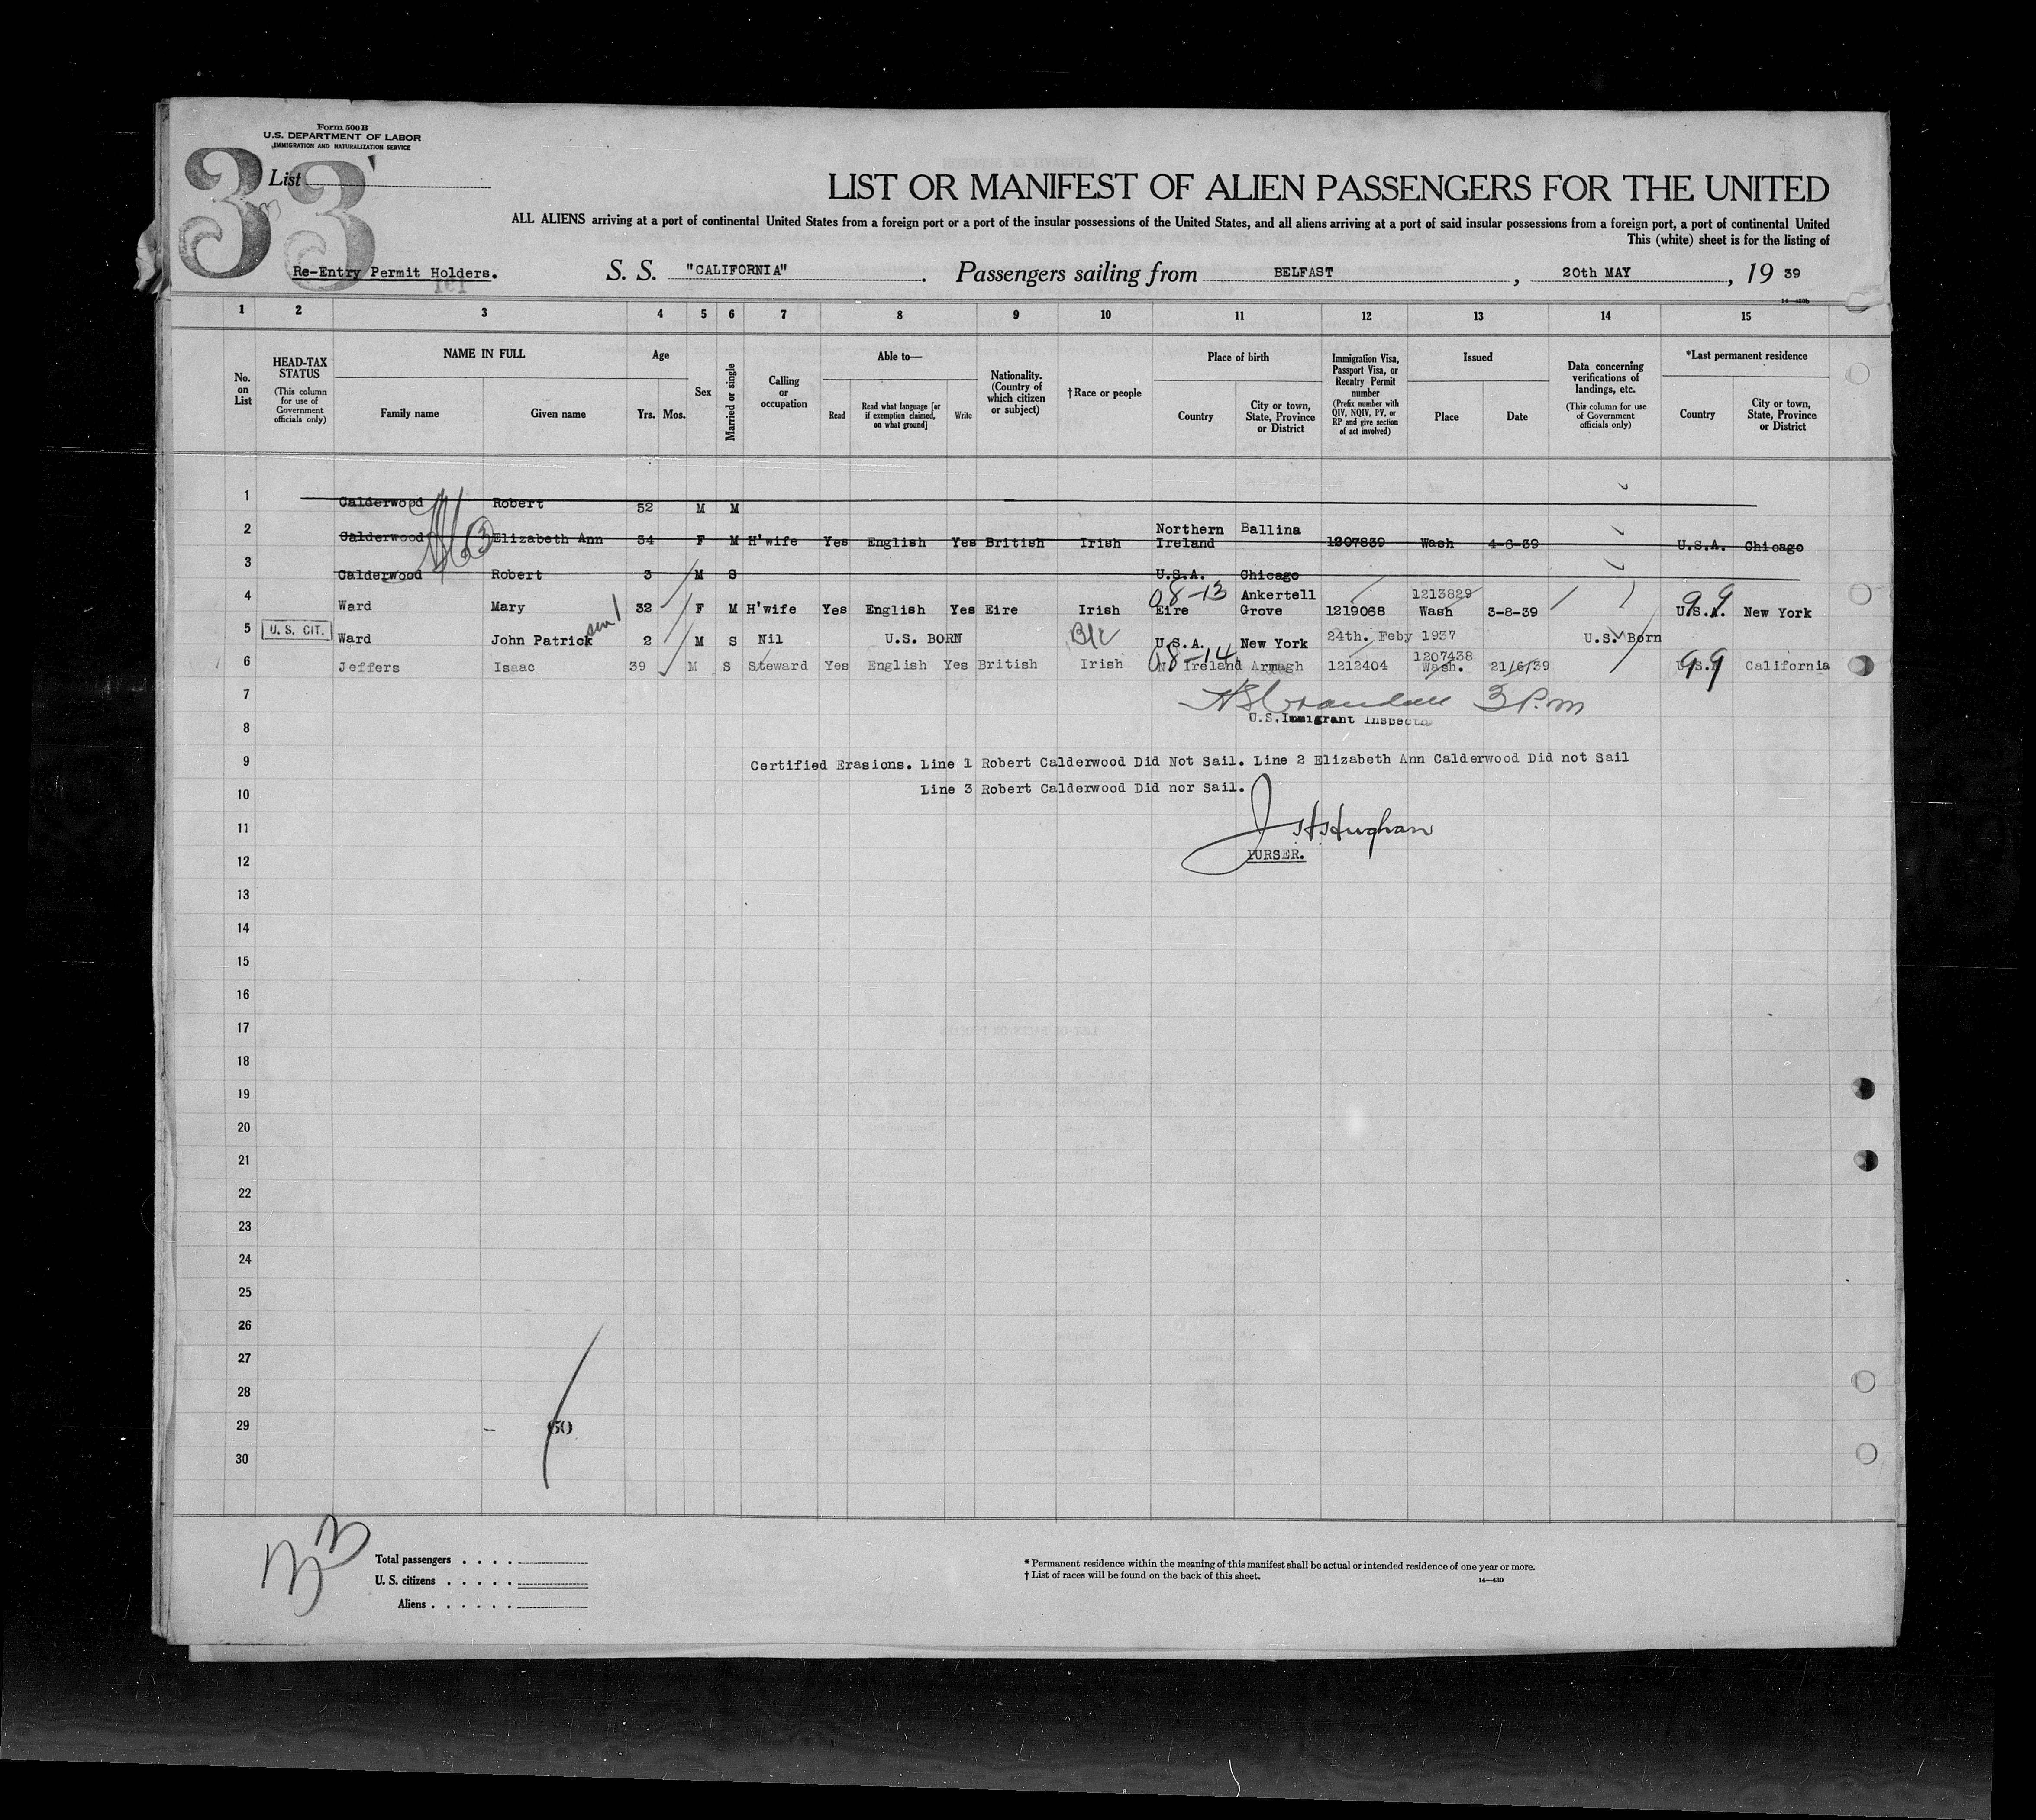 Form 500B
U.S. DEPARTMENT OF LABOR
IMMIGRATION AND NATURALIZATION SERVICE
33
List
LIST OR MANIFEST OF ALIEN PASSENGERS FOR THE UNITED
ALL ALIENS arriving at a port of continental United States from a foreign port or a port of the insular possessions of the United States, and all aliens arriving at a port of said insular possessions from a foreign port, a port of continental United
This (white) sheet is for the listing of
Re-Entry Permit Holders. S. S. "CALIFORNIA". Passengers sailing from BELFAST, 20th MAY, 19 39
14—430b
1 2 3 4 5 6 7 8 9 10 11 12 13 14 15
No. on List
HEAD-TAX STATUS (This column for use of Government officials only)
NAME IN FULL
Family name Given name
Age
Yrs. Mos.
Sex
Married or single
Calling or occupation
Able to—
Read Read what language [or if exemption claimed, on what ground] Write
Nationality. (Country of which citizen or subject)
† Race or people
Place of birth
Country City or town, State, Province or District
Immigration Visa, Passport Visa, or Reentry Permit number (Prefix number with QIV, NQIV, PV, or RP and give section of act involved)
Issued
Place Date
Data concerning verifications of landings, etc. (This column for use of Government officials only)
*Last permanent residence
Country City or town, State, Province or District
1 Calderwood Robert 52 M M
2 Calderwood Elizabeth Ann 34 F M H'wife Yes English Yes British Irish Northern Ireland Ballina 1207839 Wash 4-6-39 U.S.A. Chicago
3 Calderwood Robert 3 M S U.S.A. Chicago
4 Ward Mary 32 F M H'wife Yes English Yes Eire Irish 08-13 Eire Ankertell Grove 1219068 1213829 Wash 3-8-39 99 U.S.A. New York
5 U. S. CIT. Ward John Patrick son 2 M S Nil U.S. BORN B/c U.S.A. New York 24th. Feby 1937 U.S. Born
6 Jeffers Isaac 39 M S Steward Yes English Yes British Irish 08-14 N. Ireland Armagh 1212404 1207438 Wash. 21/6/39 99 U.S.A California
7 3 P.m
U.S. Immigrant Inspector
8
9 Certified Erasions. Line 1 Robert Calderwood Did Not Sail. Line 2 Elizabeth Ann Calderwood Did not Sail
10 Line 3 Robert Calderwood Did nor Sail.
11 J H Hughan
12 PURSER.
13
14
15
16
17
18
19
20
21
22
23
24
25
26
27
28
29 60
30
33
Total passengers . . . .
U. S. citizens . . . . .
Aliens . . . . . .
* Permanent residence within the meaning of this manifest shall be actual or intended residence of one year or more.
† List of races will be found on the back of this sheet.
14—430